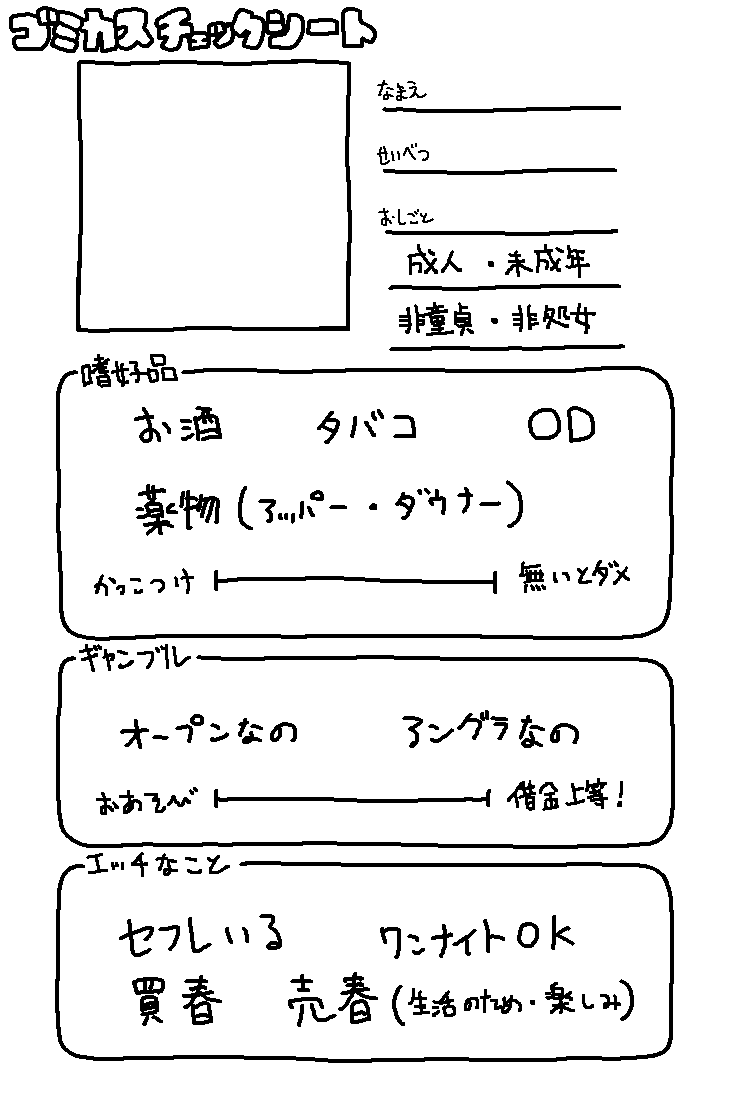 ゴミカスチェックシート
なまえ
せいべつ
おしごと
成人・未成年
非童貞・非処女
嗜好品
お酒 タバコ OD
薬物(アッパー・ダウナー)
かっこつけ 無いとダメ
ギャンブル
オープンなの アングラなの
おあそび 借金上等!
エッチなこと
セフレいる ワンナイトOK
買春 売春(生活のため・楽しみ)